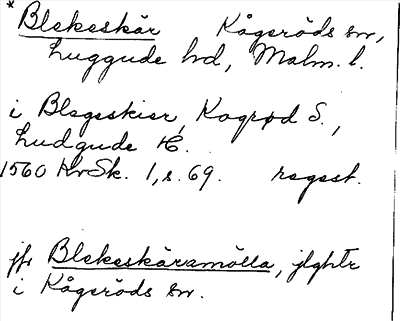 * Blekeskär Kågeröds sn,
Luggude hd, Malm. l.
i Blegeskier, Kogrød S.,
Ludgude H.
1560 HvSk. 1, s. 69. regest.
jfr Blekeskärsmölla, jlghtr
i Kågeröds sn.